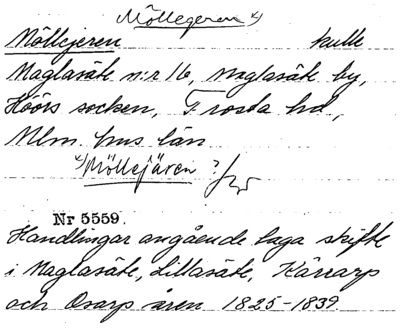 Möllegeren x)
Möllejeren kulle
Maglasäte n:r 16, Maglasäte by,
Höörs socken, Frosta hd,
Mlm. hus län
x) Möllejären ?/
Nr 5559.
Handlingar angående laga skifte
i Maglasäte, Lillasäte, Kärrarp
och Osarp åren 1825-1839.